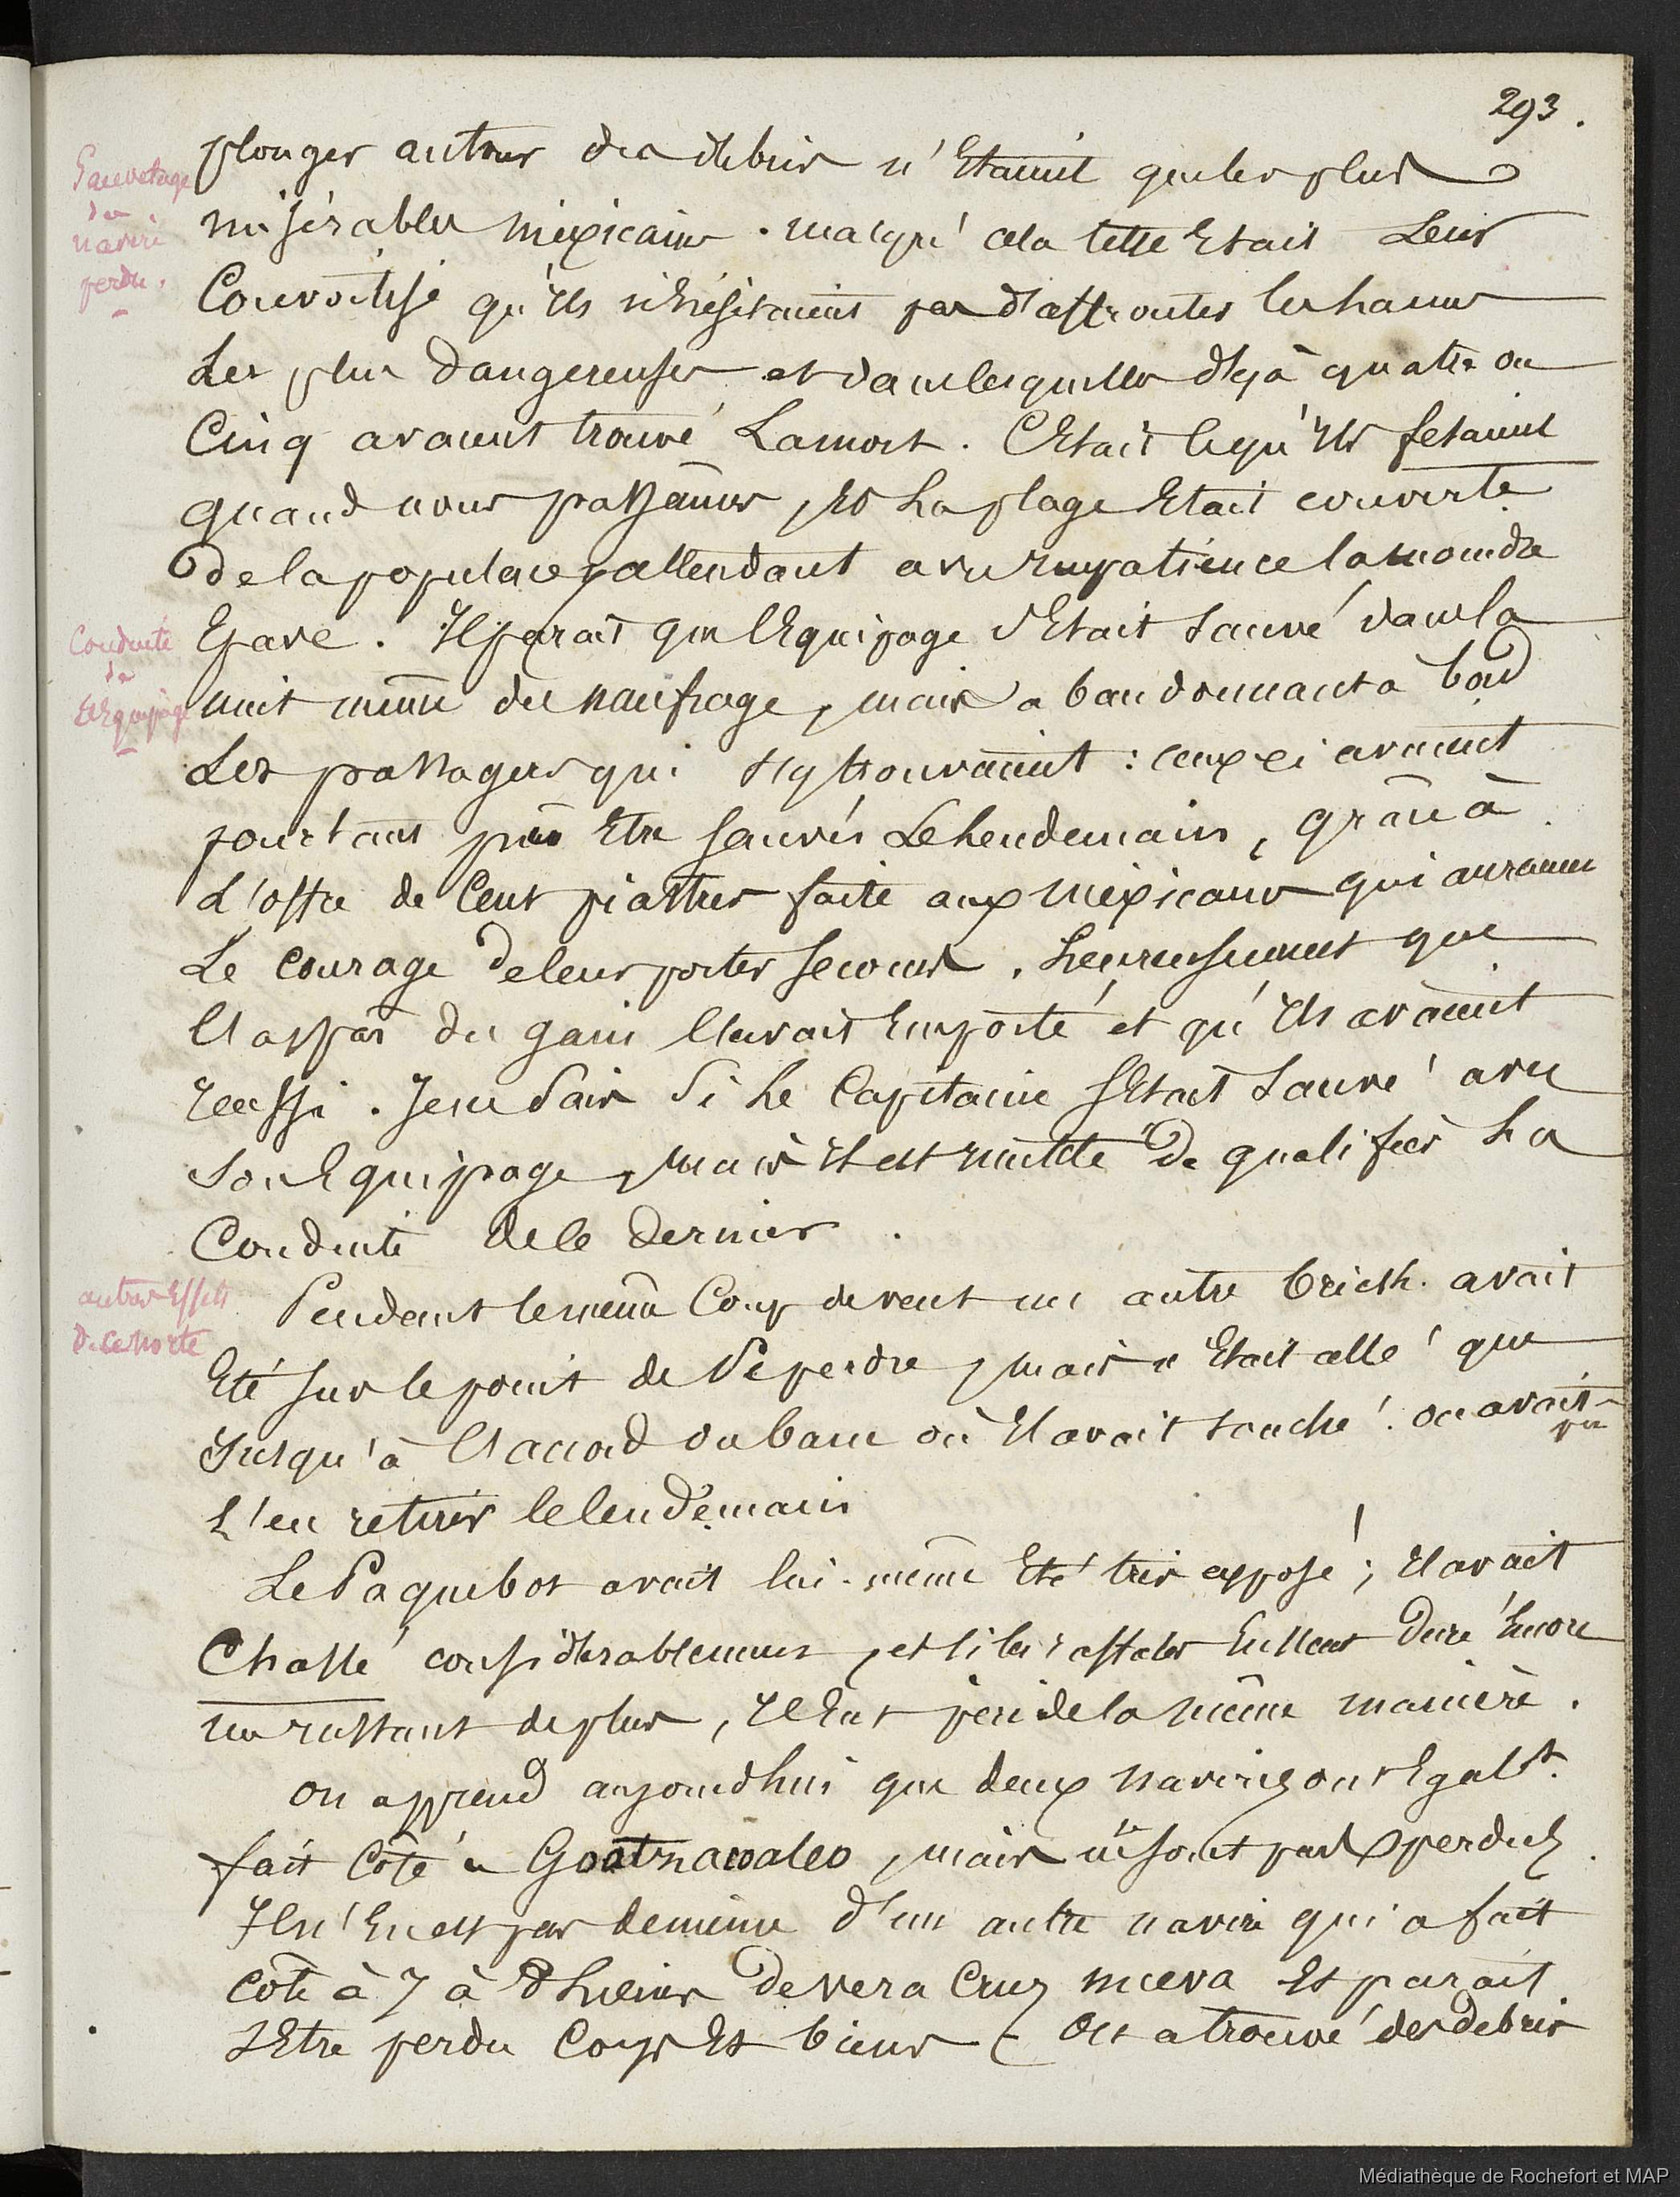 293.
Sauvetage
du
navire
perdu.
plonger autour des debris n'Etaient que les plus
misérables mexicains. malgré cela telle Etait Leur
Convoitise qu'ils n'hésitaient pas d'affronter les hauts
Les plus Dangereuses et dans lesquelles déjà quatre ou
Cinq avaient trouvé La mort. C'Etait ce qu'Ils fesaient
quand nous passâmes, Et La plage Etait couverte
De la populace, attendant avec Impatience la moindre
Epave. Il parait que l'Equipage s'Etait sauvé dans la
Conduite
de
l'Equipage
nuit même du naufrage, mais abandonnant à bord
Les passagers qui s'y trouvaient: ceux ci avaient
pourtant pu Etre sauvés Le lendemain, grâce à
L'offre de Cent piastres faite aux Mexicains qui auraient
Le courage de leur porter secours. heureusement que
l'appas du gain l'avait Emporté et qu'Ils avaient
réussi. Je ne sais si Le Capitaine s'Etait sauvé avec
son Equipage, mais Il est inutile De qualifier La
Conduite de ce Dernier.
autres Effets
De ce Norte
Pendant le même Coup de vent un autre brick avait
Eté sur le point de se perdre, mais n'Etait allé que
Jusqu'à l'accord du banc où Il avait touché. on avait
pu
L'en retirer le lendemain
Le Paquebot avait lui-même Eté très exposé; Il avait
Chassé considérablement, et si les raffales Eussent Duré Encore
un Instant de plus, Il Eut péri de la même manière.
on apprend aujourdhui que deux navires ont Egalt.
fait côte à Goatzacoalco, mais ne sont pas perdus.
Il n'En est pas de même d'un autre navire qui a fait
côte à 7 à 8 Lieues De Vera Cruz nueva Et parait
s'Etre perdu Corps Et biens (On a trouvé des debris
Médiathèque de Rochefort et MAP